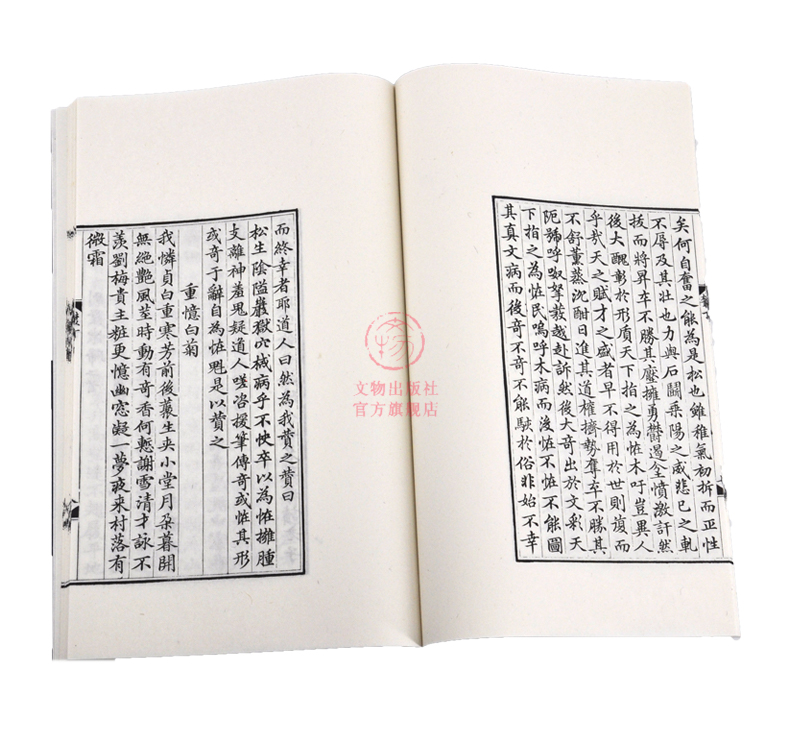 矣何自奮之能為是松也雖稚氣初拆而正性
不辱及其壯也力與石鬭乘陽之威悲已之軋
拔而將昇卒不勝其壓擁勇鬱遏坌憤激訐然
後大醜彰於形質天下指之為恠木吁豈異人
乎哉天之賦才之盛者早不得用於世則復而
不舒薰蒸沈酣日進其道權擠勢奪卒不勝其
阨號呼呶拏發越赴訴然後大奇出於文彩天
下指之為恠民嗚呼木病而後恠不恠不能圖
其真文病而後奇不奇不能駴於俗非始不幸
而終幸者耶道人曰然為我賛之賛曰
松生陰隘巖獄穴械病乎不快卒以為恠擁腫
支離神羞鬼疑道人嗟咨援筆傳奇或恠其形
或奇于辭自為恠魁是以賛之
重憶白菊
我憐貞白重寒芳前後叢生夾小堂月朶暮開
無絕艷風莖時動有奇香何慙謝雪清才詠不
羡劉梅貴主粧更憶幽窓凝一夢夜來村落有
微霜
文物
文物出版社
官方旗舰店